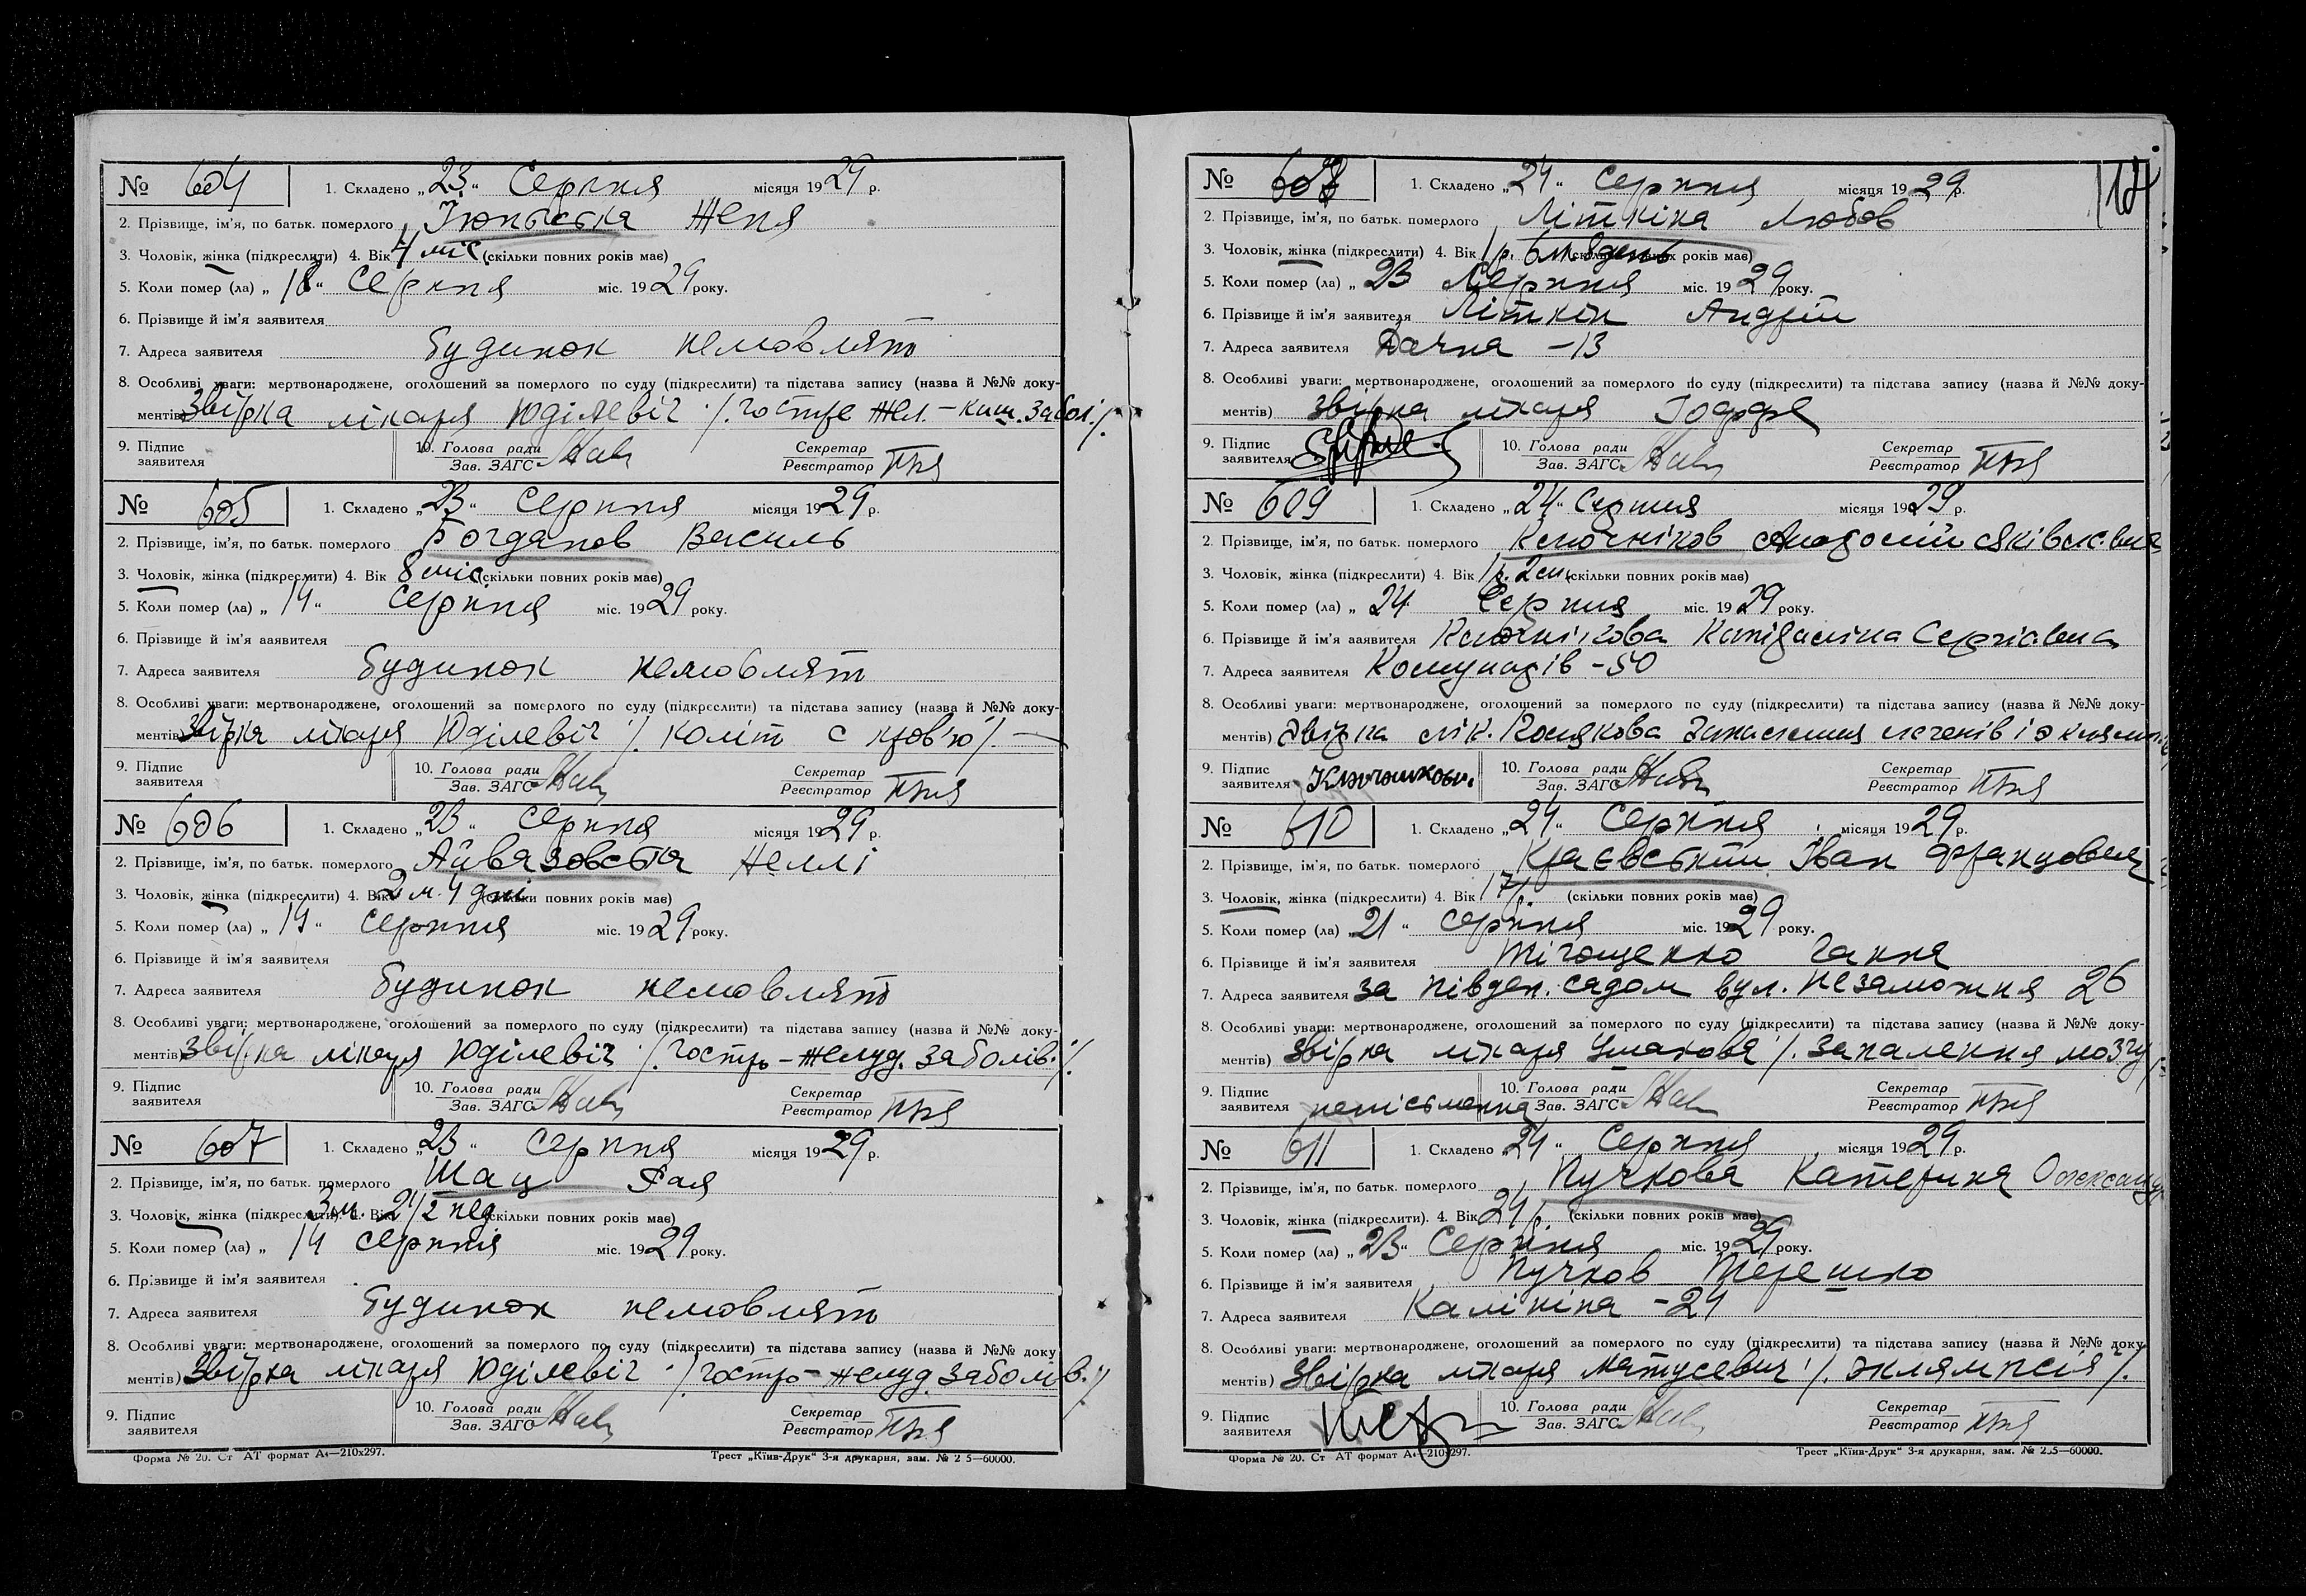 № 604 1. Складено „23“ Серпня місяця 1929 р.
2. Прізвище, ім'я, по батьк. померлого Женя
3. Чоловік, жінка (підкреслити) 4. Вік 4 міс (скільки повних років має)
5. Коли помер (ла) „18“ Серпня міс. 1929 року.
6. Прізвище й ім'я заявителя
7. Адреса заявителя будинок немовлят
8. Особливі уваги: мертвонароджене, оголошений за померлого по суду (підкреслити) та підстава запису (назва й №№ доку-
ментів) Звірка лікаря Юділевіч /. гостре жел.-киш. забол /.
9. Підпис заявителя 10. Голова ради Зав. ЗАГС Секретар Реєстратор
№ 605 1. Складено „23“ Серпня місяця 1929 р.
2. Прізвище, ім'я, по батьк. померлого Богданов Василь
3. Чоловік, жінка (підкреслити) 4. Вік 8 міс (скільки повних років має)
5. Коли помер (ла) „14“ серпня міс. 1929 року.
6. Прізвище й ім'я заявителя
7. Адреса заявителя будинок немовлят
8. Особливі уваги: мертвонароджене, оголошений за померлого по суду (підкреслити) та підстава запису (назва й №№ доку-
ментів) Звірка лікаря Юділевіч /. коліт с кров'ю /.
9. Підпис заявителя 10. Голова ради Зав. ЗАГС Секретар Реєстратор
№ 606 1. Складено „23“ Серпня місяця 1929 р.
2. Прізвище, ім'я, по батьк. померлого Айвазовська Неллі
3. Чоловік, жінка (підкреслити) 4. Вік 2 м. 4 дні (скільки повних років має)
5. Коли помер (ла) „14“ серпня міс. 1929 року.
6. Прізвище й ім'я заявителя
7. Адреса заявителя будинок немовлят
8. Особливі уваги: мертвонароджене, оголошений за померлого по суду (підкреслити) та підстава запису (назва й №№ доку-
ментів) Звірка лікаря Юділевіч /. гостро-желуд. заболів. /.
9. Підпис заявителя 10. Голова ради Зав. ЗАГС Секретар Реєстратор
№ 607 1. Складено „23“ Серпня місяця 1929 р.
2. Прізвище, ім'я, по батьк. померлого Шац Рая
3. Чоловік, жінка (підкреслити). 4. Вік 3 м. 2 1/2 нед (скільки повних років має)
5. Коли помер (ла) „14 серпня міс. 1929 року.
6. Прізвище й ім'я заявителя
7. Адреса заявителя будинок немовлят
8. Особливі уваги: мертвонароджене, оголошений за померлого по суду (підкреслити) та підстава запису (назва й №№ доку
ментів) Звірка лікаря Юділевіч /. гостро-желуд. заболів. /.
9. Підпис заявителя 10. Голова ради Зав. ЗАГС Секретар Реєстратор
Форма № 20. Ст АТ формат А4—210х297. Трест „Київ-Друк“ 3-я друкарня, зам. № 2 5—60000.
№ 608 1. Складено „24“ Серпня місяця 1929 р.
2. Прізвище, ім'я, по батьк. померлого Літкіна Любов
3. Чоловік, жінка (підкреслити) 4. Вік 1 р. 6 м. 8 день (скільки повних років має)
5. Коли помер (ла) „23 Серпня міс. 1929 року.
6. Прізвище й ім'я заявителя Літкін Андрій
7. Адреса заявителя Дачна -13
8. Особливі уваги: мертвонароджене, оголошений за померлого по суду (підкреслити) та підстава запису (назва й №№ доку-
ментів) звірка лікаря Іоффе
9. Підпис заявителя 10. Голова ради Зав. ЗАГС Секретар Реєстратор
№ 609 1. Складено „24“ Серпня місяця 1929 р.
2. Прізвище, ім'я, по батьк. померлого Ключніков
3. Чоловік, жінка (підкреслити) 4. Вік 1 р. 2 м. (скільки повних років має)
5. Коли помер (ла) „24 Серпня міс. 1929 року.
6. Прізвище й ім'я заявителя Ключнікова Капіталіна Сергієвна
7. Адреса заявителя Комунарів -50
8. Особливі уваги: мертвонароджене, оголошений за померлого по суду (підкреслити) та підстава запису (назва й №№ доку-
ментів) Звірка лік. Запалення легенів і
9. Підпис заявителя 10. Голова ради Зав. ЗАГС Секретар Реєстратор
№ 610 1. Складено „24“ Серпня місяця 1929 р.
2. Прізвище, ім'я, по батьк. померлого Краєвський Іван Францович
3. Чоловік, жінка (підкреслити) 4. Вік 17 р. (скільки повних років має)
5. Коли помер (ла) „21“ серпня міс. 1929 року.
6. Прізвище й ім'я заявителя Тігощенко Ганна
7. Адреса заявителя за півден. садом вул. Незаможня 26
8. Особливі уваги: мертвонароджене, оголошений за померлого по суду (підкреслити) та підстава запису (назва й №№ доку-
ментів) Звірка лікаря Ушакова /. запалення мозгу /.
9. Підпис заявителя неписьменна 10. Голова ради Зав. ЗАГС Секретар Реєстратор
№ 611 1. Складено „24“ Серпня місяця 1929 р.
2. Прізвище, ім'я, по батьк. померлого Пучкова Катерина Олександр
3. Чоловік, жінка (підкреслити). 4. Вік 24 р. (скільки повних років має)
5. Коли помер (ла) „23“ Серпня міс. 1929 року.
6. Прізвище й ім'я заявителя Пучков Терешко
7. Адреса заявителя Калініна -24
8. Особливі уваги: мертвонароджене, оголошений за померлого по суду (підкреслити) та підстава запису (назва й №№ доку-
ментів) Звірка лікаря Матусевич /. эклямпсія /.
9. Підпис заявителя 10. Голова ради Зав. ЗАГС Секретар Реєстратор
Форма № 20. Ст АТ формат А4—210х297. Трест „Київ-Друк“ 3-я друкарня, зам. № 2.5—60000.